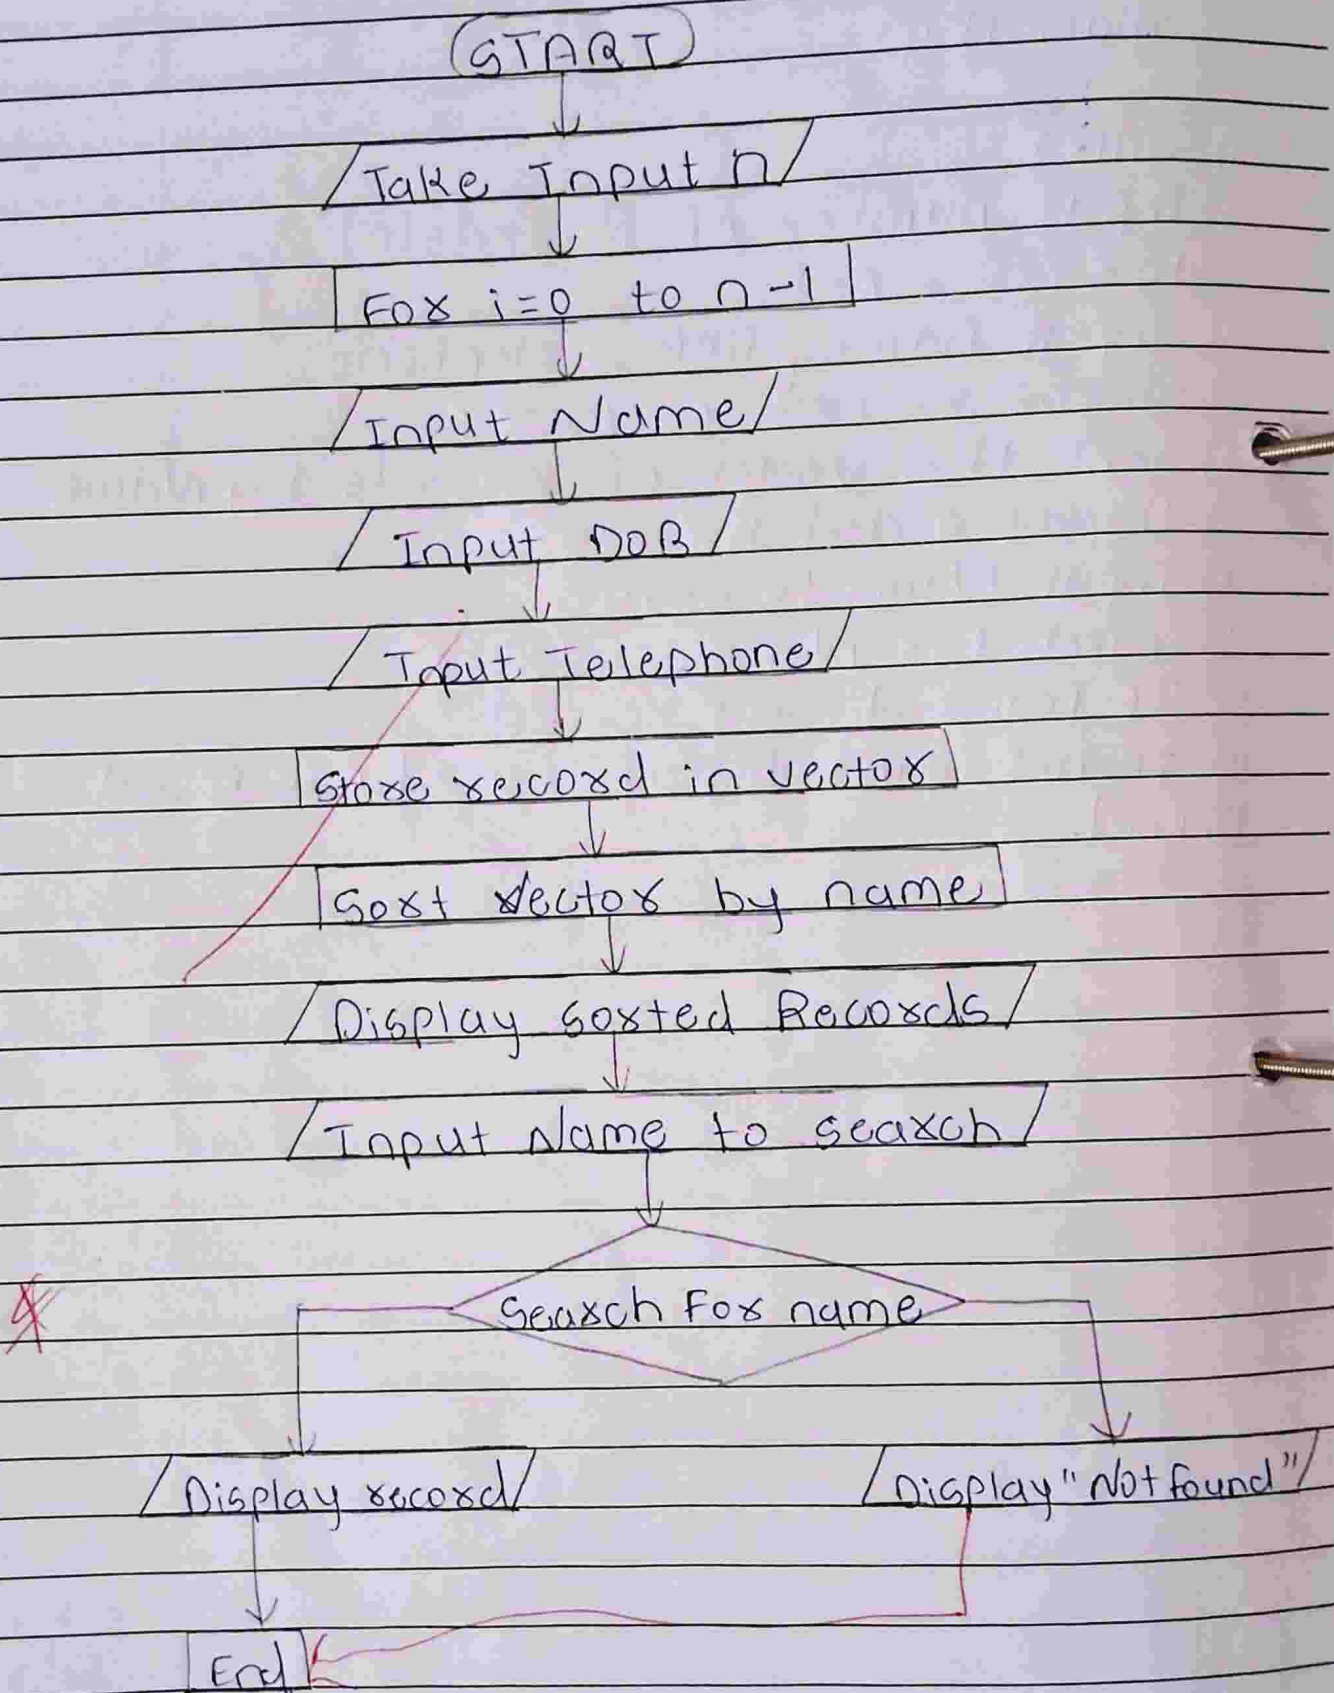 START
Take Input n
For i=0 to n-1
Input Name
Input DOB
Input Telephone
Store record in vector
Sort Vector by name
Display sorted Records
Input Name to search
Search For name
Display record
Display "Not found"
End